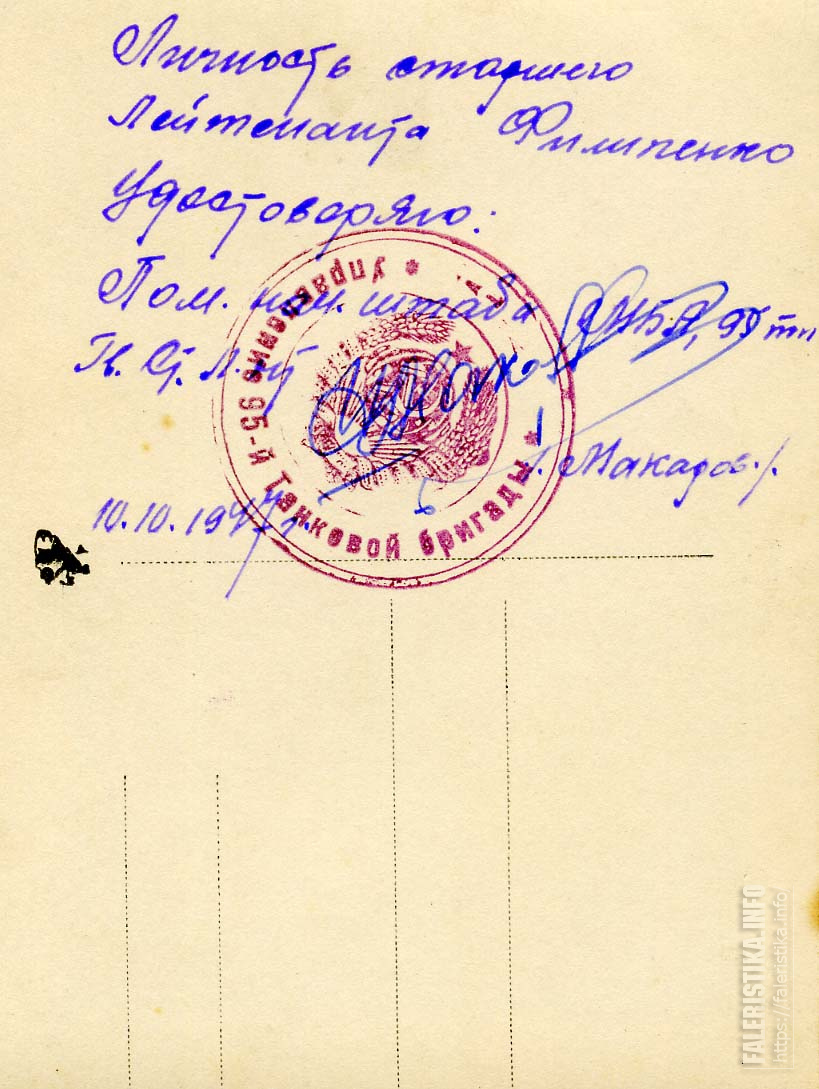 Личность старшего
Лейтенанта Филипенко
Удостоверяю:
Пом. нач. штаба 95 тп
Гв. Ст. Л-нт
/Макаров./
10.10.1947 г.
Управление 95-й Танковой бригады
FALERISTIKA.INFO
https://faleristika.info